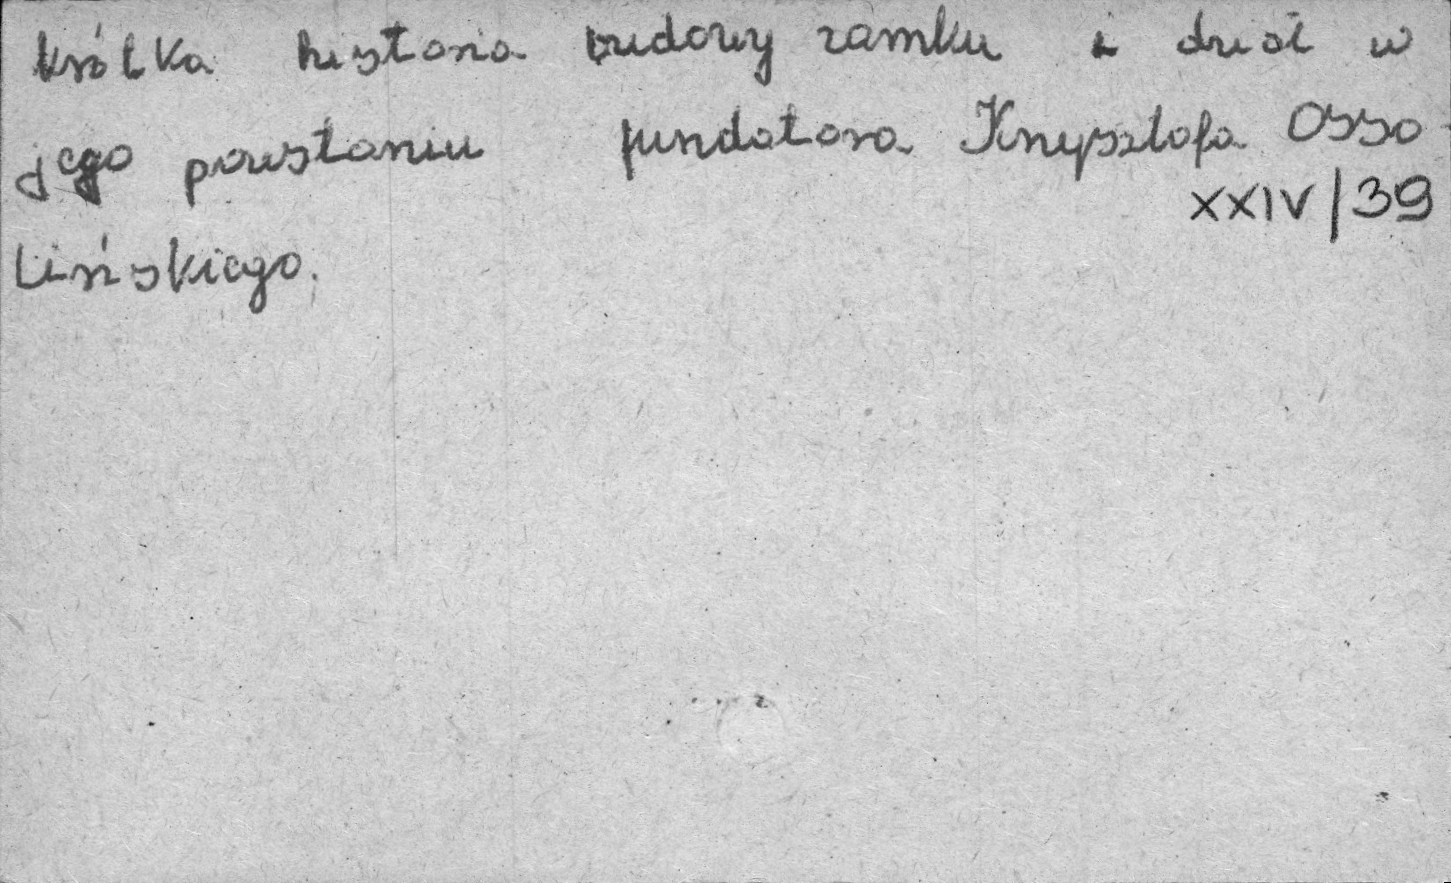 krótka historia budowy zamku i dział w
jego powstaniu fundatora Krzysztofa Osso-
XXIV/39
lińskiego.